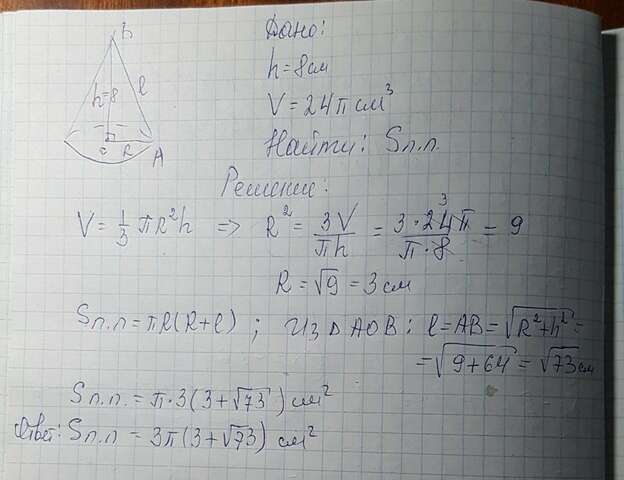 B
h=8
l
C
R
A
Дано:
h=8см
V=24π см³
Найти: Sп.п.
Решение:
V=1/3 πR²h => R²= 3V/πh = 3·24π/π·8 = 9
3
R=√9=3см
Sп.п=πR(R+l); Из ΔAOB: l=AB=√R²+h²=
=√9+64=√73см
Sп.п.=π·3(3+√73) см²
Ответ: Sп.п=3π(3+√73) см²